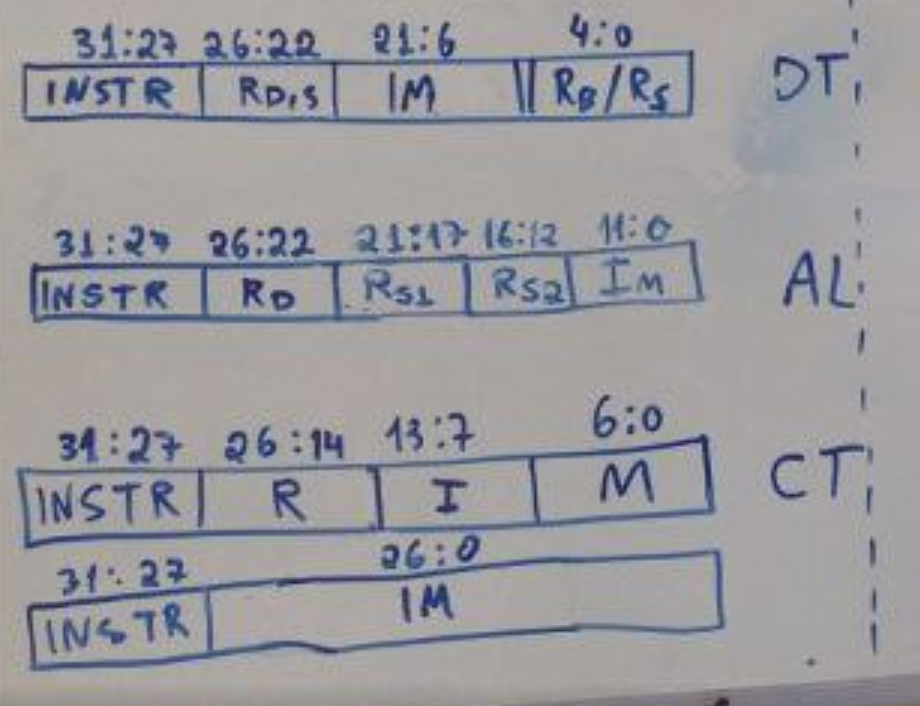 31:27 26:22 21:6 4:0
INSTR RD,S IM RB/RS DT
31:27 26:22 21:17 16:12 11:0
INSTR RD RS1 RS2 IM AL
31:27 26:14 13:7 6:0
INSTR R I M CT
31:27 26:0
INSTR IM